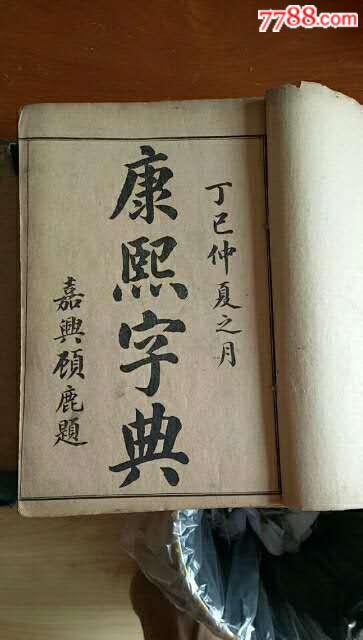 7788.com
丁巳仲夏之月
康熙字典
嘉興顾鹿題